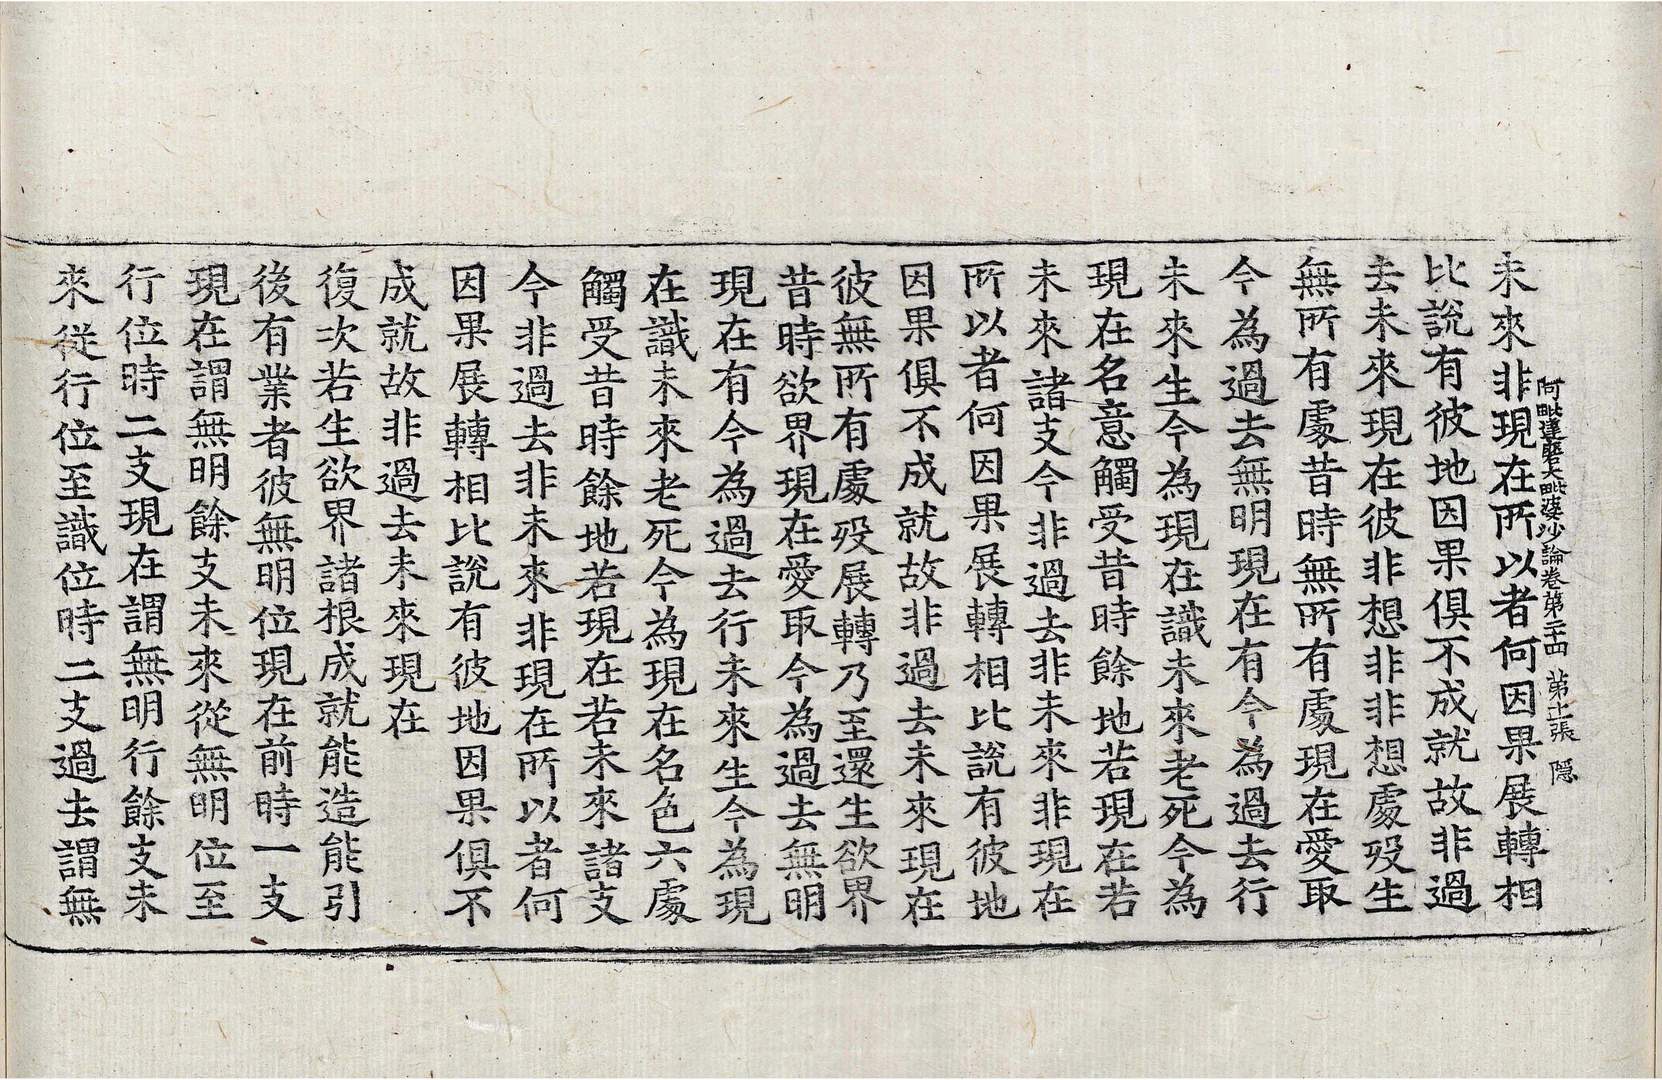 阿毗達磨大毗婆沙論卷第二十四 第十一張 隱
未來非現在所以者何因果展轉相
比說有彼地因果俱不成就故非過
去未來現在彼非想非非想處歿生
無所有處昔時無所有處現在愛取
今為過去無明現在有今為過去行
未來生今為現在識未來老死今為
現在名意觸受昔時餘地若現在若
未來諸支今非過去非未來非現在
所以者何因果展轉相比說有彼地
因果俱不成就故非過去未來現在
彼無所有處歿展轉乃至還生欲界
昔時欲界現在愛取今為過去無明
現在有今為過去行未來生今為現
在識未來老死今為現在名色六處
觸受昔時餘地若現在若未來諸支
今非過去非未來非現在所以者何
因果展轉相比說有彼地因果俱不
成就故非過去未來現在
復次若生欲界諸根成就能造能引
後有業者彼無明位現在前時一支
現在謂無明餘支未來從無明位至
行位時二支現在謂無明行餘支未
來從行位至識位時二支過去謂無